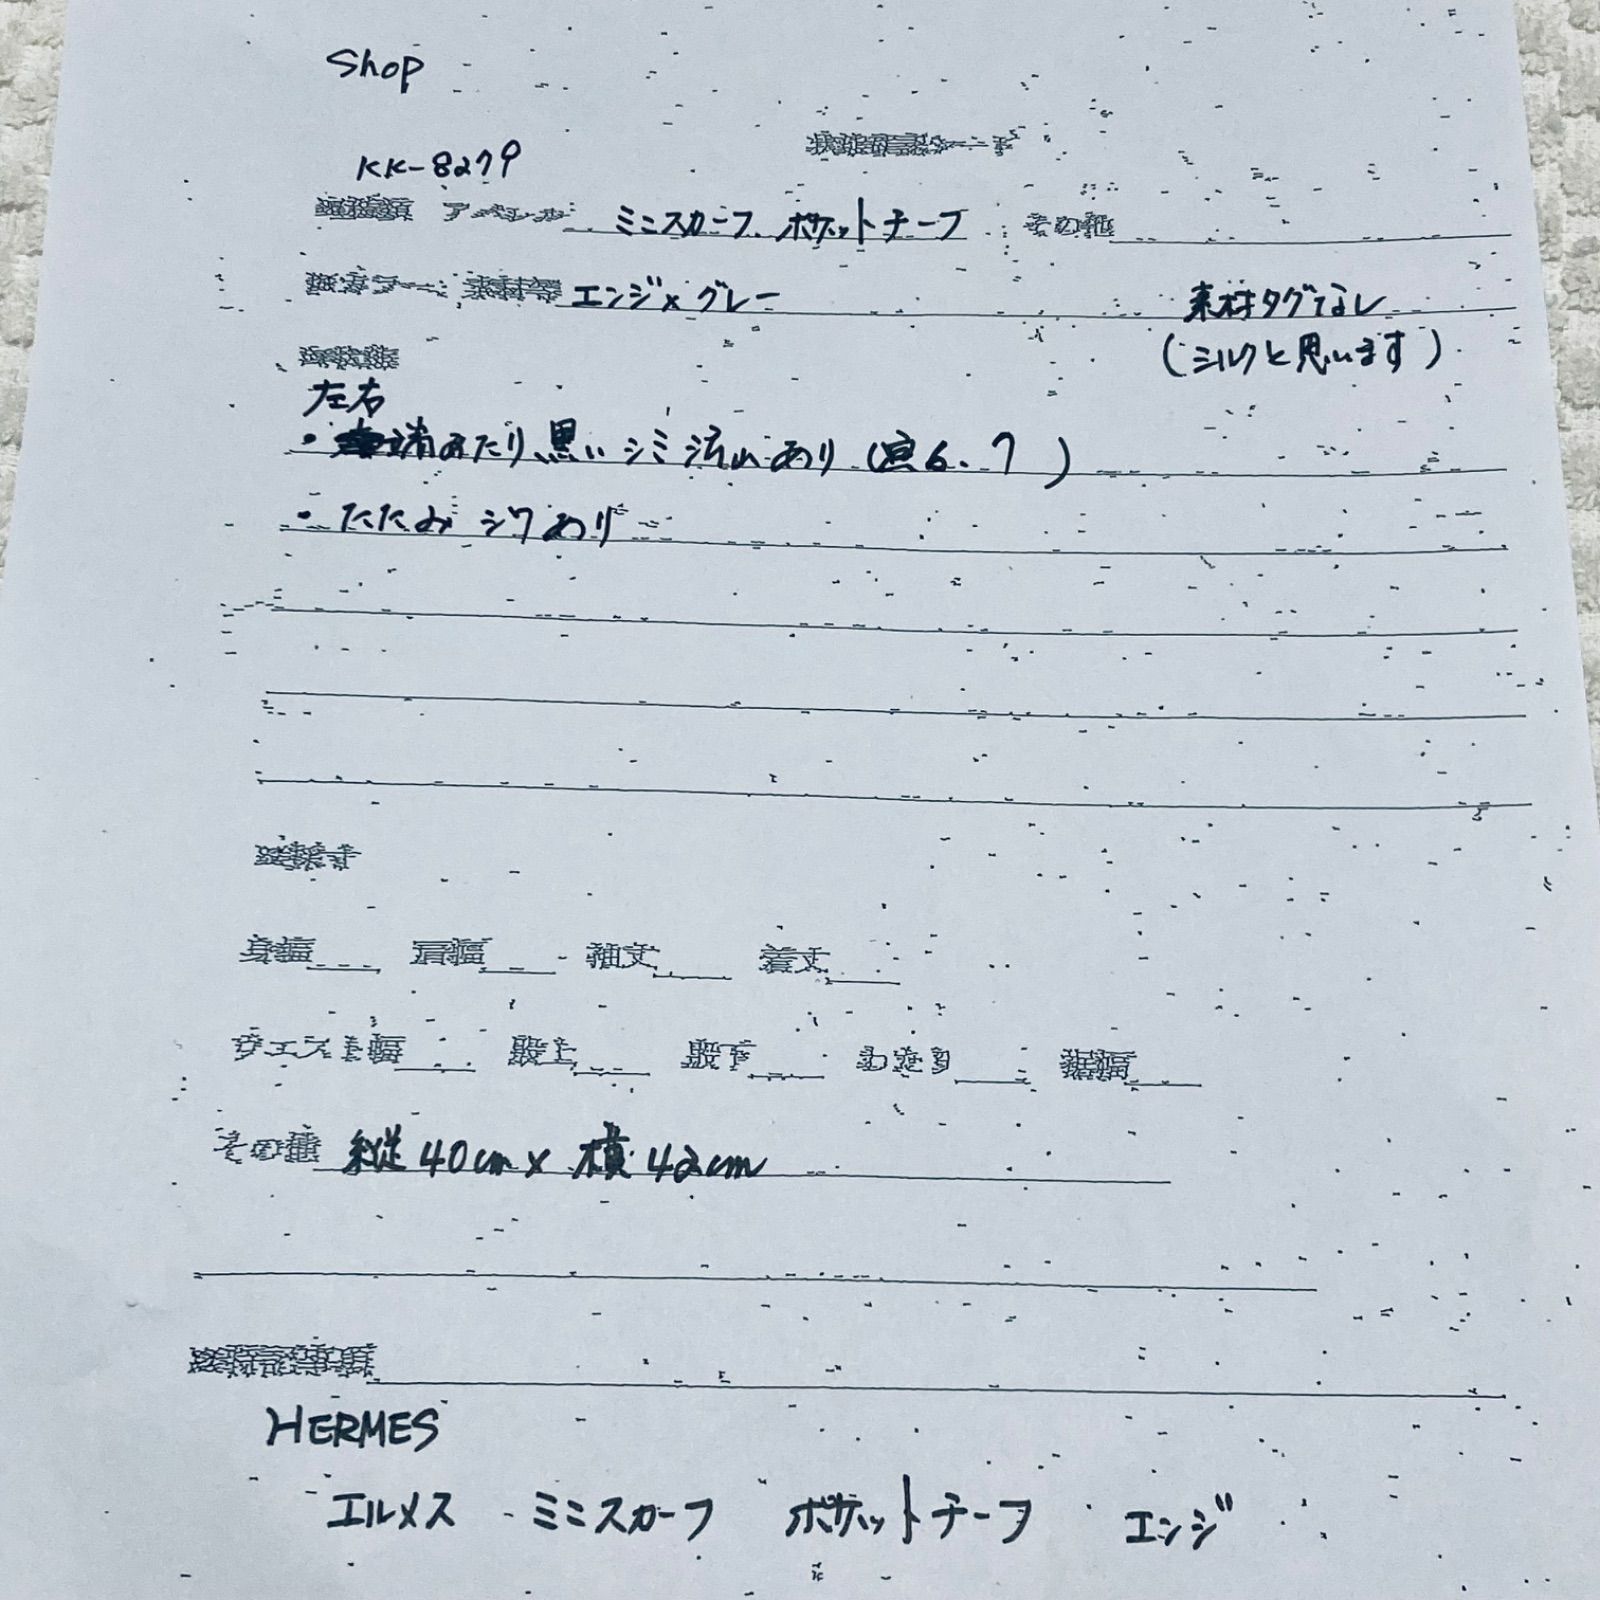 Shop
KK-8279
アパレル ミニスカーフ、ポケットチーフ その他
カラー 素材等 エンジ×グレー 素材タグなし
(シルクと思います)
左右
・端あたり、黒いシミ 汚れあり (写6、7)
・たたみジワあり
採寸
身幅 肩幅 袖丈 着丈
ウエスト幅 股上 股下 わたり 裾幅
その他 縦40cm×横42cm
特記事項
HERMES
エルメス ミニスカーフ ポケットチーフ エンジ